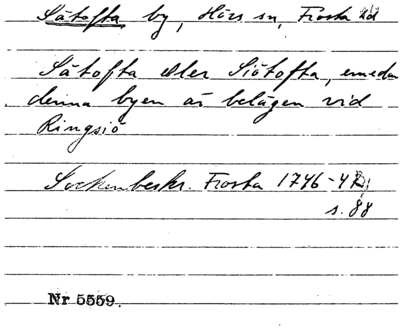 Sätofta by, Hörs sn, Frosta hd
Sätofta eller Siötofta, emedan
denna byen är belägen vid
Ringsiö
Sockenbeskr. Frosta 1746-47,
s. 88
Nr 5559.